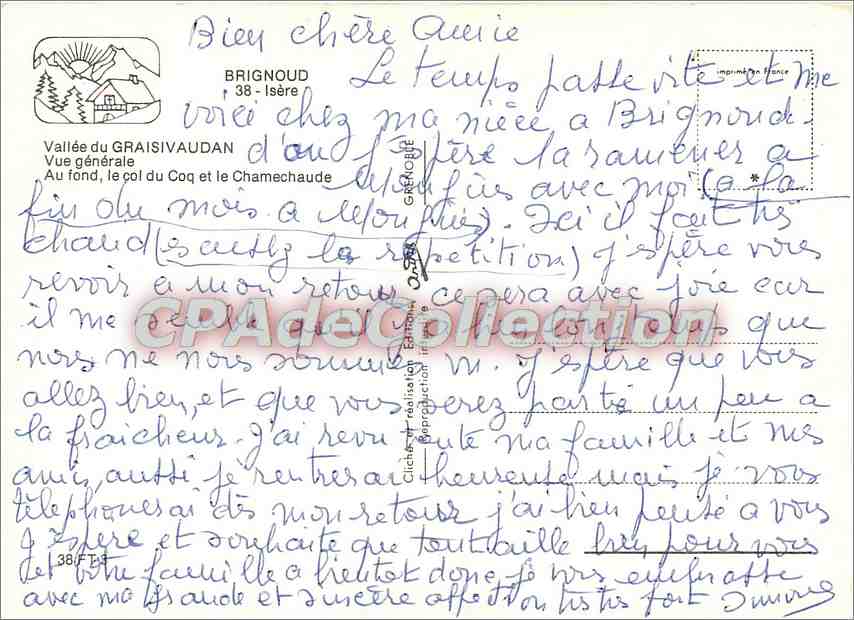 Bien chère Amie
BRIGNOUD
38 - Isère
imprimé en France
Le temps passe vite et me
voici chez ma nièce a Brignoud.
Vallée du GRAISIVAUDAN
Vue générale
Au fond, le col du Coq et le Chamechaude
d'ou j'espère la ramener a
Mougins avec moi (a la
fin du mois a Mougins). Ici il fait très
chaud (sautez la répétition) j'espère vous
revoir a mon retour ce sera avec joie car
il me semble qu'il y a bien longtemps que
nous ne nous sommes vu. j'espère que vous
allez bien, et que vous serez partie un peu a
la fraicheur. J'ai revu toute ma famille et mes
amis, aussi je rentrerai heureuse mais je vous
téléphonerai dès mon retour j'ai bien pensé a vous
j'espère et souhaite que tout aille bien pour vous
et votre famille a bientot donc, je vous embrasse
avec ma grande et sincère affection très très fort Simone
38 FT 3
GRENOBLE
Cliché et réalisation Editions
Reproduction interdite
CPAdeCollection.com